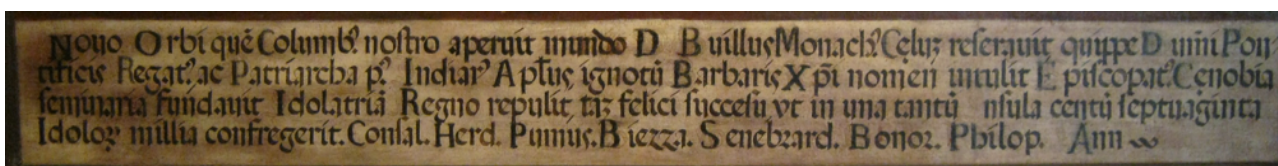 Nouo Orbi quē Columbꝰ nostro aperuit mundo D Buillus Monachꝰ Cęluꝫ reserauit quippe D umi Pon
tificis Regatꝰ ac Patriarcha pꝰ Indiarꝰ Apłus ignotū Barbaris Xpi nomen intulit Episcopatꝰ Cenobia
seminaria fundauit Idolatriā Regno repulit tāꝫ felici succesu vt in una tantū nsula centū septuaginta
Idoloꝝ millia confregerit. Consal. Herd. Pumus. Biezza. Senebrard. Bonoz. Philop. Ann